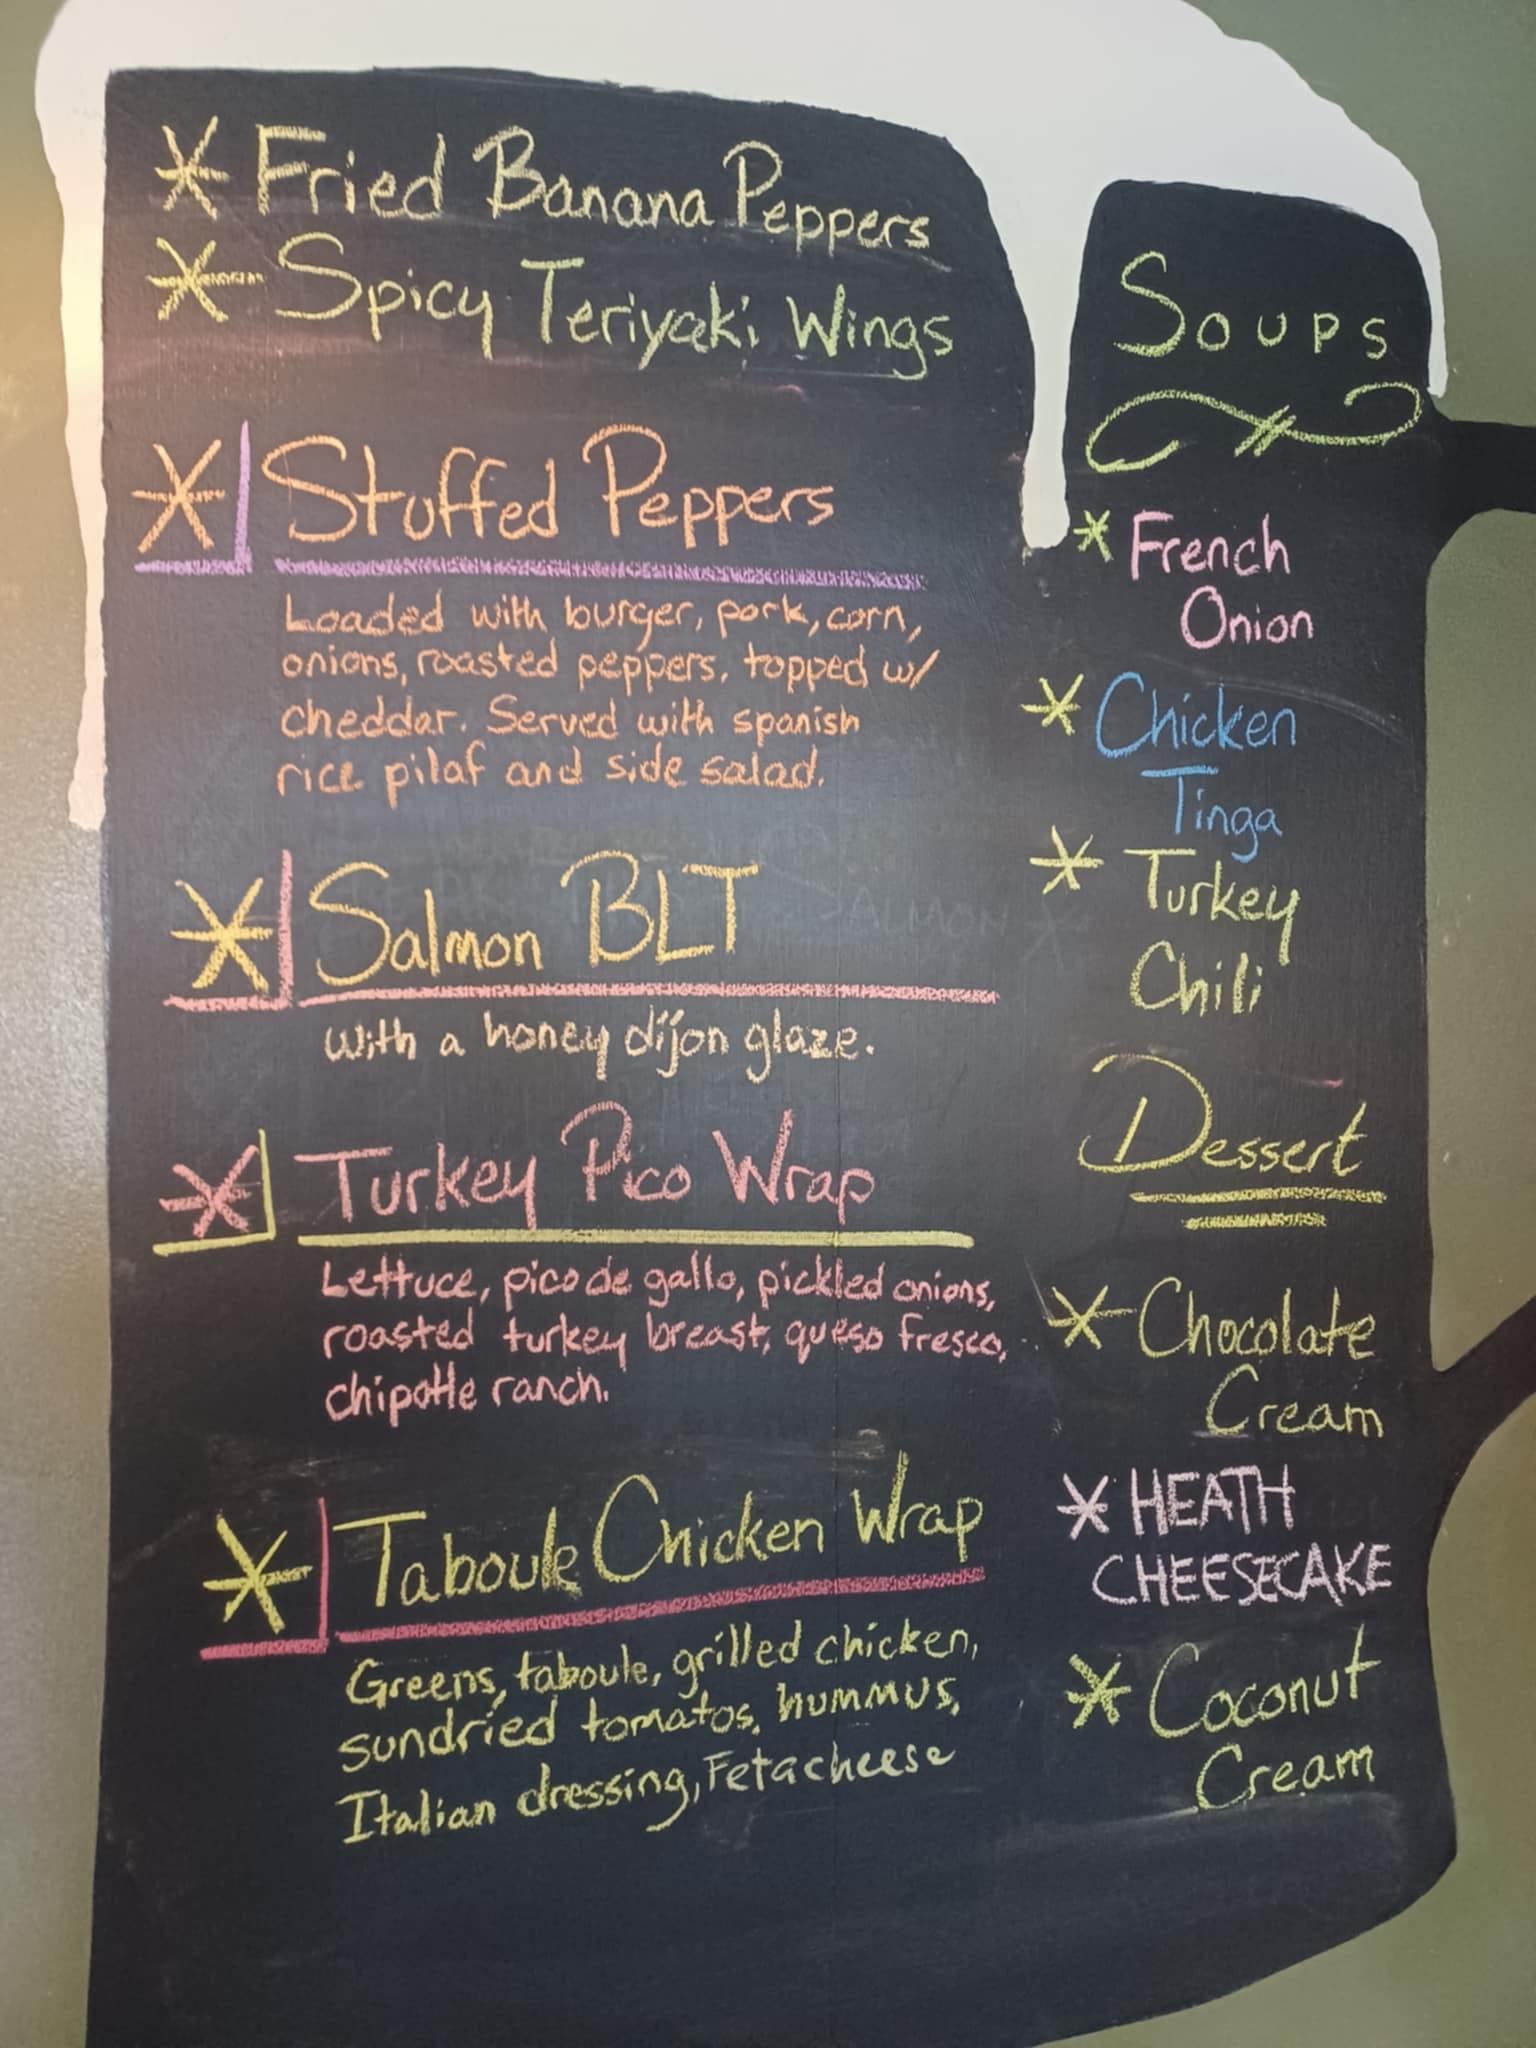 Fried Banana Peppers
Spicy Teriyaki Wings
Stuffed Peppers
Loaded with burger, pork, corn,
onions, roasted peppers, topped w/
cheddar. Served with spanish
rice pilaf and side salad.
Salmon BLT
with a honey dijon glaze.
Turkey Pico Wrap
Lettuce, pico de gallo, pickled onions,
roasted turkey breast, queso fresco,
chipotle ranch.
Taboule Chicken Wrap
Greens, taboule, grilled chicken,
sundried tomatos, hummus,
Italian dressing, Feta cheese
Soups
French
Onion
Chicken
Tinga
Turkey
Chili
Dessert
Chocolate
Cream
HEATH
CHEESECAKE
Coconut
Cream